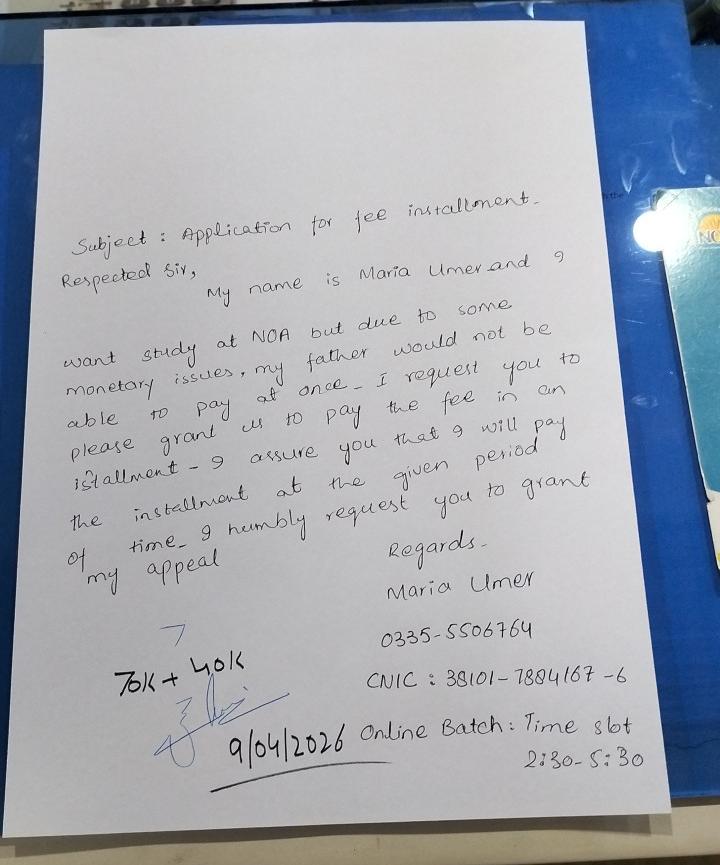 Subject : Application for fee installment.
Respected Sir,
My name is Maria Umer and I
want study at NOA but due to some
monetary issues, my father would not be
able to pay at once. I request you to
please grant us to pay the fee in an
istallment. I assure you that I will pay
the installment at the given period
of time. I humbly request you to grant
my appeal
Regards.
Maria Umer
0335-5506764
CNIC : 38101-7884167-6
Online Batch : Time slot
2:30-5:30
70K + 40K
9/04/2026